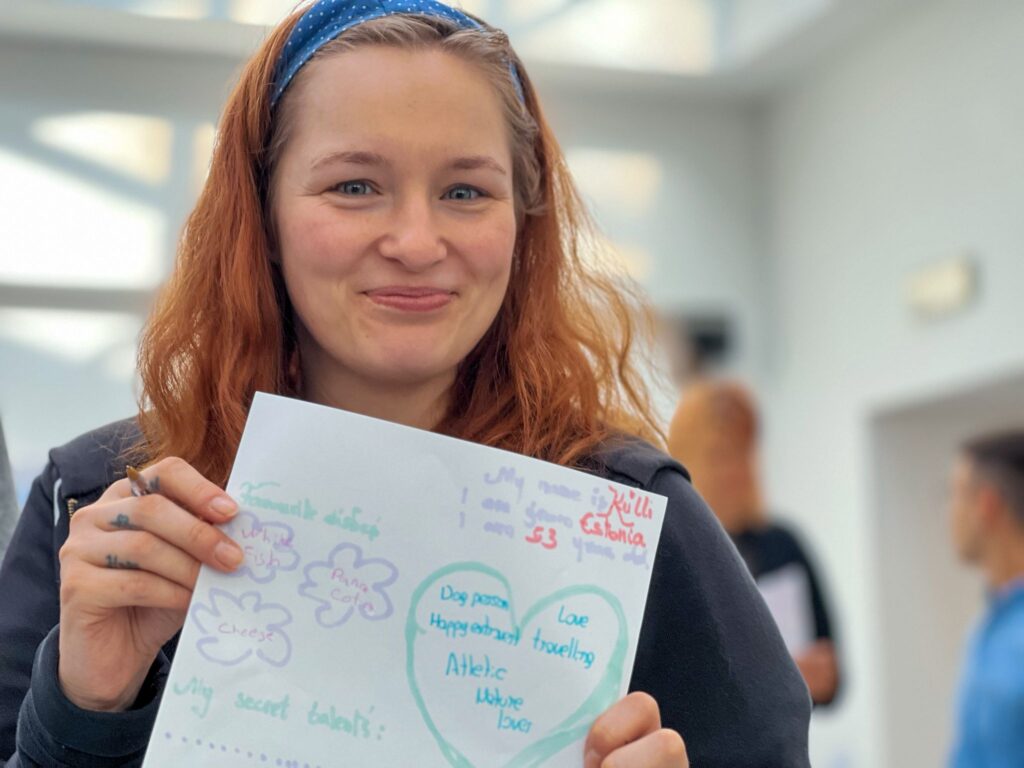 My name is Külli
I am from Estonia
I am 53 years old
Favourite dishes
White
Fish
Panna
Cota
Cheese
Dog person
Happy extrovert
Love
travelling
Atletic
Nature
lover
My secret talents: